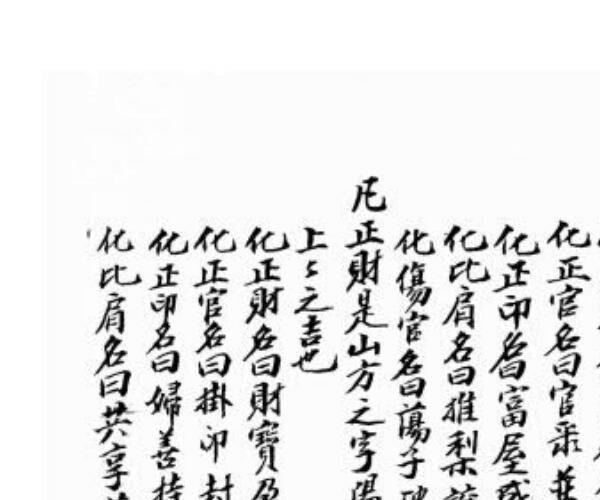 化正官名曰官
化正印名曰富屋
化比肩名曰推
化傷官名曰蕩子
凡正財是山方之字陽
上〻之吉也
化正財名曰財寶及
化正官名曰掛印封
化正印名曰婦善持
化比肩名曰共享